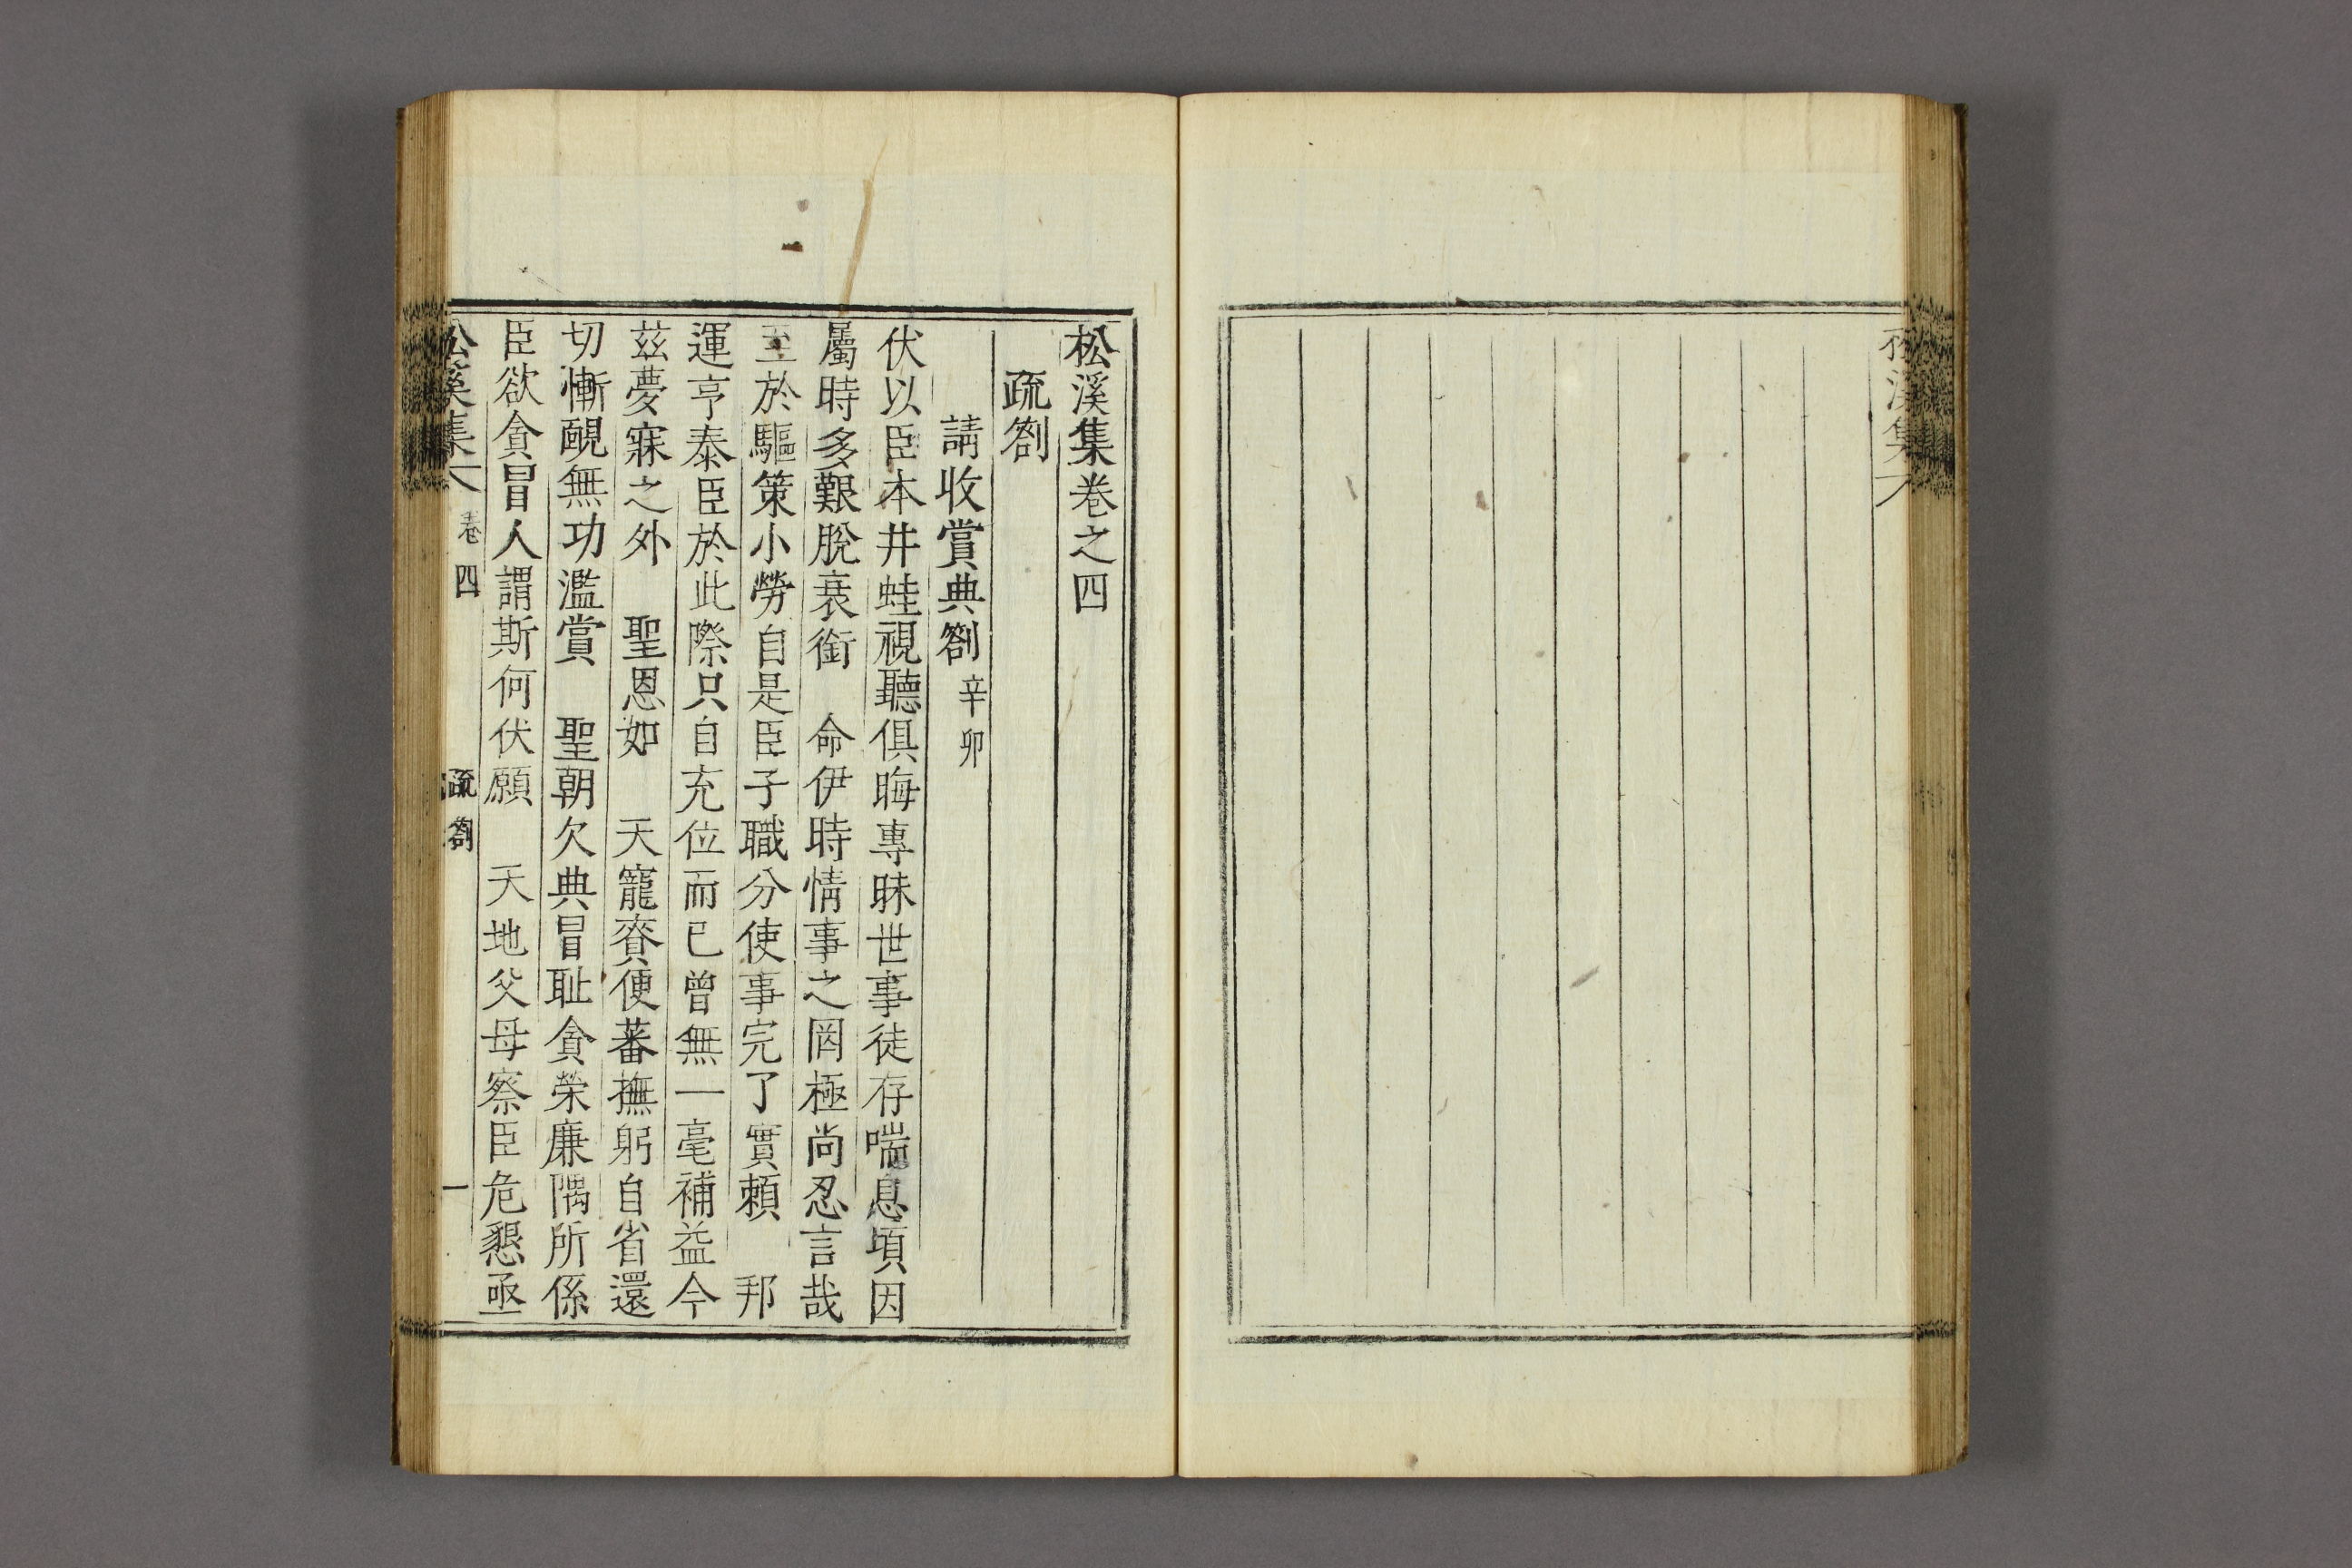 松溪集
松溪集卷之四
疏劄
請收賞典劄辛卯
伏以臣本井蛙視聽俱晦專昧世事徒存喘息頃因
屬時多艱脫衰銜　命伊時情事之罔極尚忍言哉
至於驅策小勞自是臣子職分使事完了實賴　邦
運亨泰臣於此際只自充位而已曾無一毫補益今
茲夢寐之外　聖恩如　天寵賚便蕃撫躬自省還
切慚靦無功濫賞　聖朝欠典冒耻貪榮廉隅所係
臣欲貪冒人謂斯何伏願　天地父母察臣危懇亟
松溪集 卷四 疏劄 一